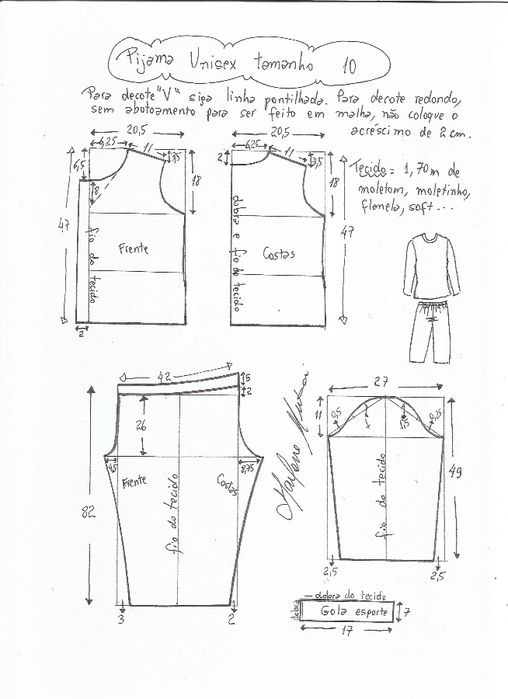 Pijama Unisex tamanho 10
Para decote "V" siga linha pontilhada. Para decote redondo,
sem abotoamento para ser feito em malha, não coloque o
acréscimo de 2 cm.
20,5
20,5
6,25
11
3,5
6,25
11
3,5
2
Tecido = 1,70 m de
moletom, moletinho,
flanela, soft...
6,5
8
18
18
47
47
Frente
fio do tecido
Costas
dobra e fio do tecido
2
42
5
2
26
4,5
8,75
Frente
Costas
fio do tecido
82
3
2
27
11
0,5
1,5
49
fio do tecido
2,5
2,5
dobra do tecido
dobra
Gola esporte
7
17